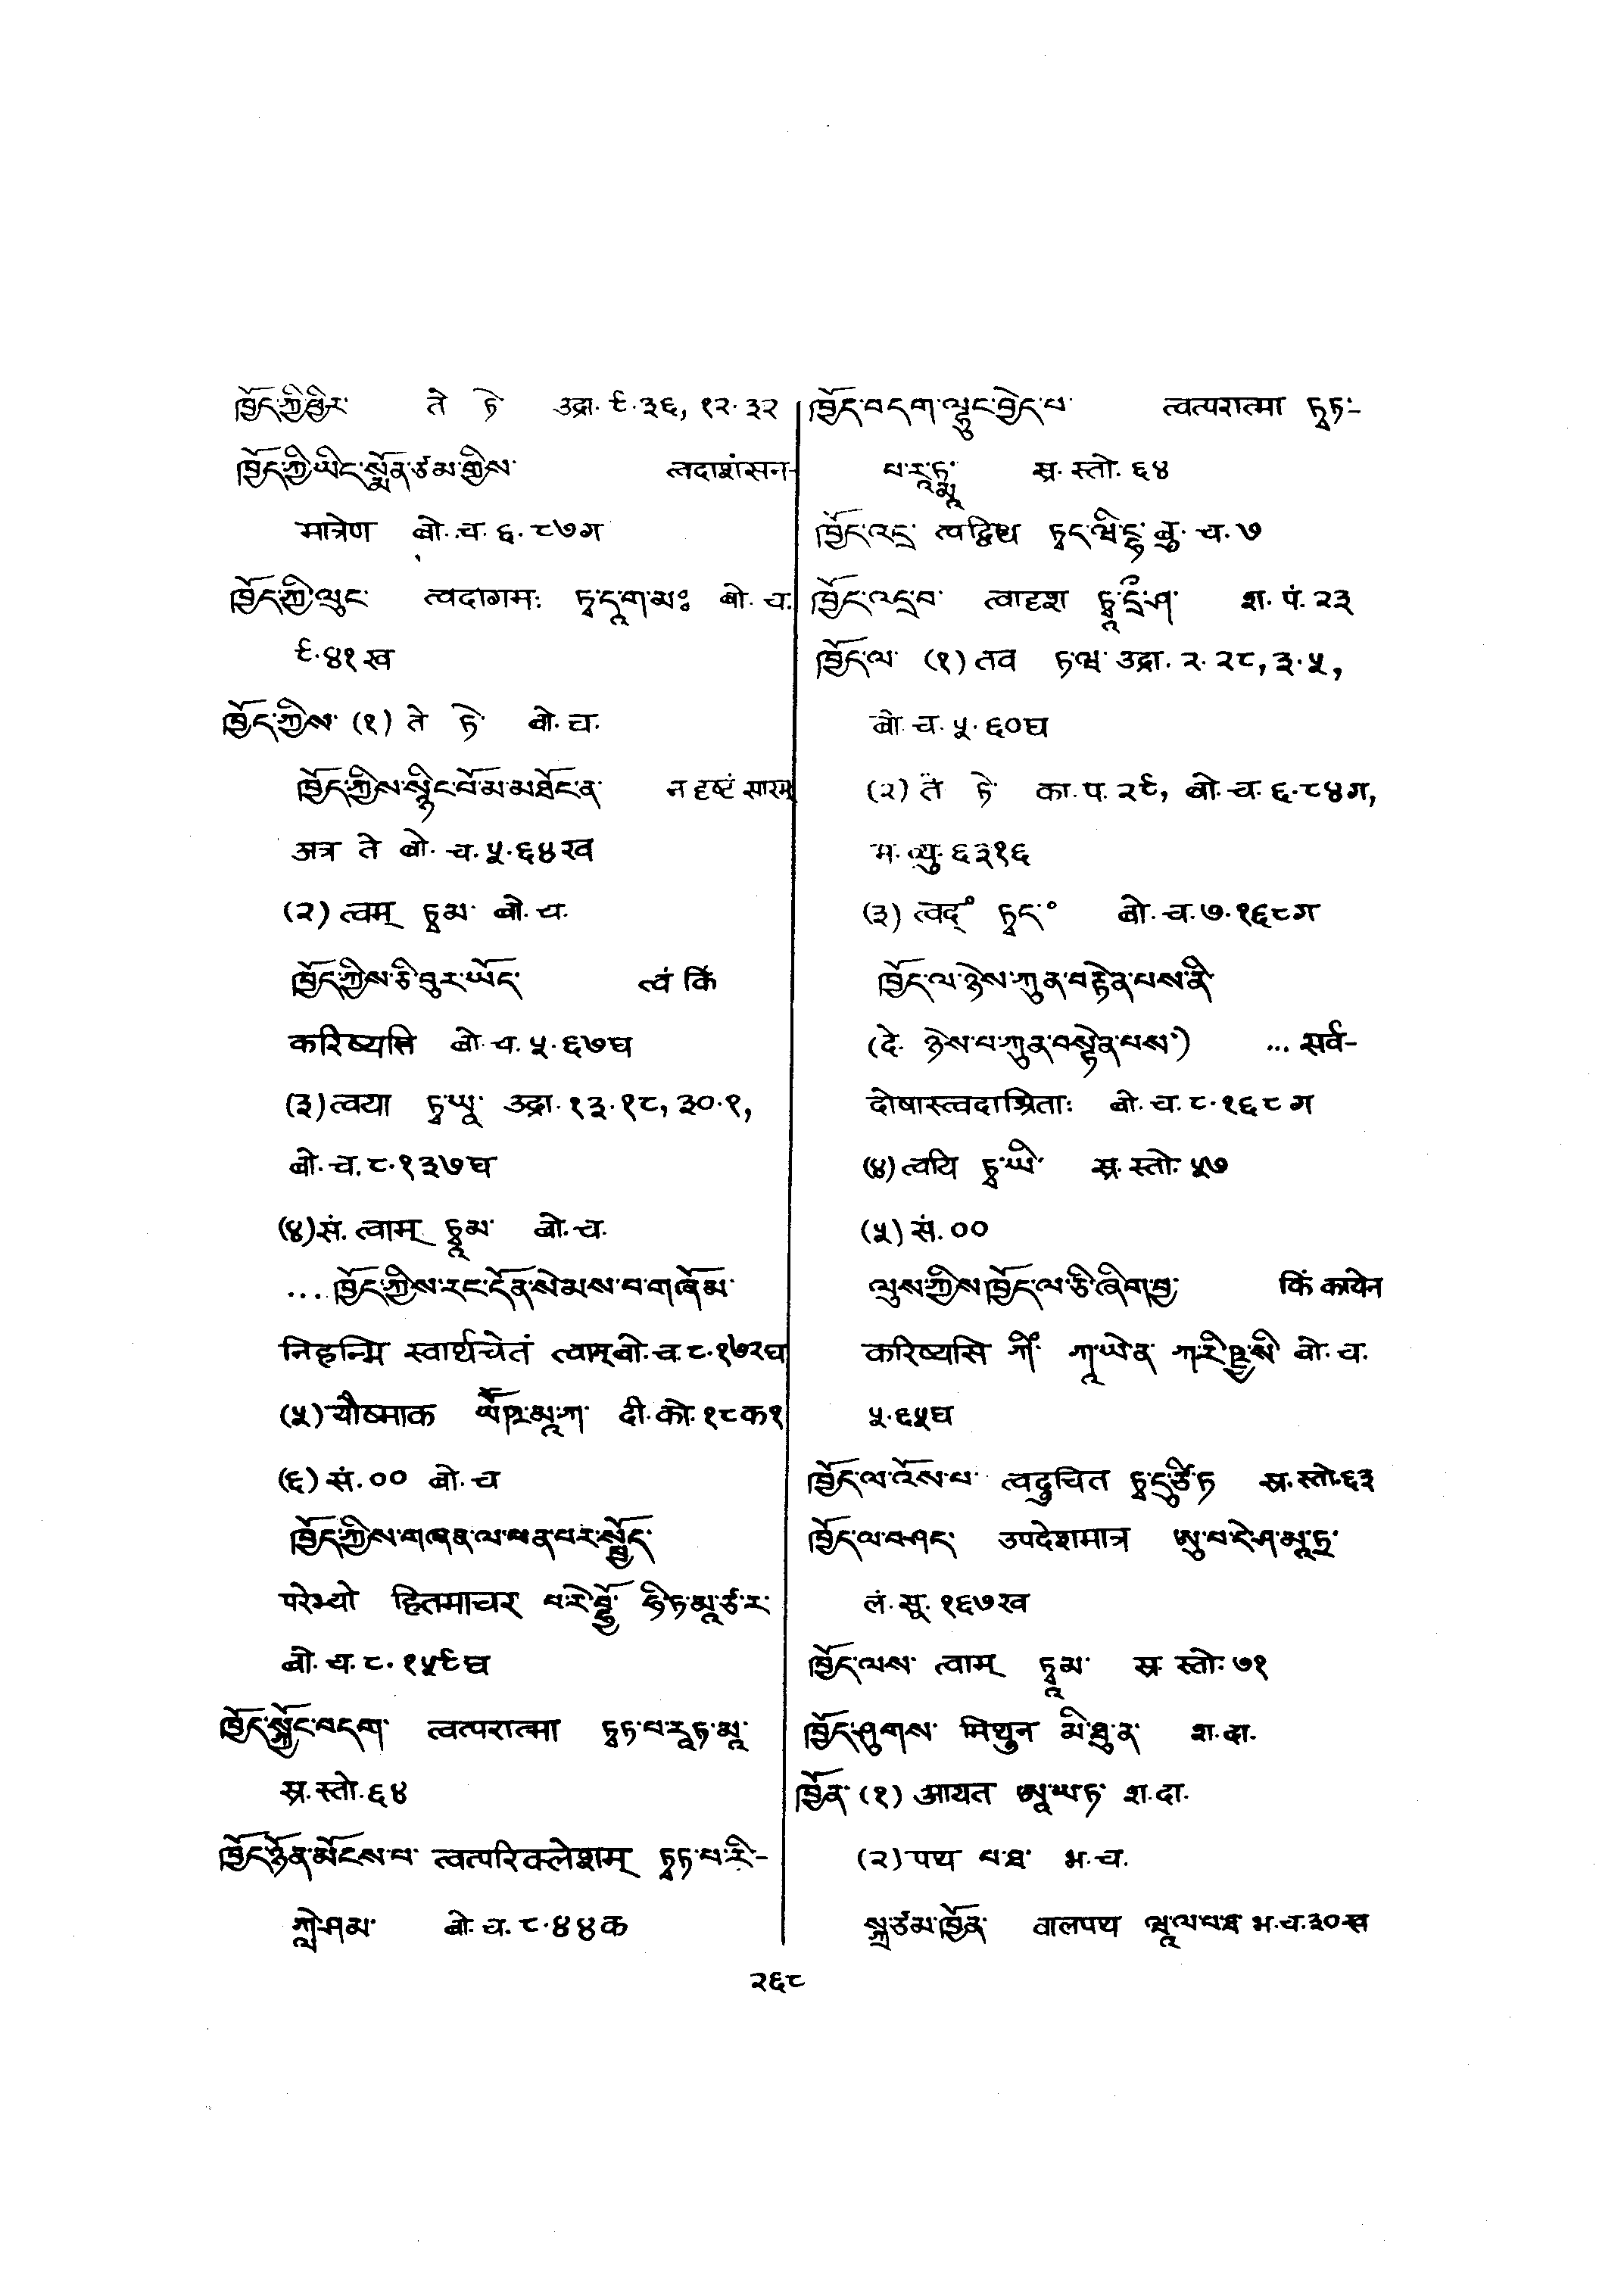 ཁྱོད་ཀྱི་ཕྱིར་ ते ཏེ་ उद्रा. ९.३६, १२.३२
ཁྱོད་ཀྱི་ཡིང་སྨོན་ཙམ་གྱིས་ त्वदाशंसन-
मात्रेण बो.च. ६.८७ग
ཁྱོད་ཀྱི་ལུང་ त्वदागमः ཏྭ་དཱ་ག་མཿ बो.च.
९.४१ख
ཁྱོད་ཀྱིས་ (१) ते ཏེ་ बो.च.
ཁྱོད་ཀྱིས་སྙིང་པོ་མ་མཐོང་ན་ न दृष्टं सारम्
अत्र ते बो.च.५.६४ख
(२) त्वम् ཏྭམ་ बो.च.
ཁྱོད་ཀྱིས་ཅི་བྱར་ཡོད་ त्वं किं
करिष्यसि बो.च.५.६७घ
(३) त्वया ཏྭ་ཡཱ་ उद्रा.१३.१८, ३०.९,
बो.च.८.१३७घ
(४) सं. त्वाम् ཏྭཱམ་ बो.च.
...ཁྱོད་ཀྱིས་རང་དོན་སེམས་པ་གཞོམ་
निहन्मि स्वार्थचेतं त्वाम् बो.च.८.१७२घ
(५) यौष्माक ཡཽཥྨཱ་ཀ་ दी.को.१८क१
(६) सं.०० बो.च
ཁྱོད་ཀྱིས་གཞན་ལ་ཕན་པར་སྤྱོད་
परेभ्यो हितमाचर པ་རེ་བྷྱོ་ ཧི་ཏ་མཱ་ཙ་ར་
बो.च.८.१५९घ
ཁྱོད་སྐྱོང་བདག་ त्वत्परात्मा ཏྭཏ་པ་རཱཏ་མཱ་
स्र.स्तो.६४
ཁྱོད་ཉོན་མོངས་པ་ त्वत्परिक्लेशम् ཏྭཏ་པ་རི-
ཀླེ་ཤམ་ बो.च.८.४४क
ཁྱོད་བདག་ལྷུང་བྱེད་པ་ त्वत्परात्मा ཏྭཏ-
པ་རཱཏྨཱ་ स्र.स्तो.६४
ཁྱོད་འདྲ་ त्वद्विध ཏྭད་ཝི་དྷ་ बु.च.७
ཁྱོད་འདྲ་བ་ त्वादृश ཏྭཱ་དྲྀ་ཤ་ श.पं.२३
ཁྱོད་ལ་ (१) तव ཏ་ཝ་ उद्रा.२.२८, ३.५,
बो.च.५.६०घ
(२) ते ཏེ་ का.प.२९, बो.च.६.८४ग,
म.व्यु.६३१६
(३) त्वद्॰ ཏྭད་॰ बो.च.७.१६८ग
ཁྱོད་ལ་ཉེས་ཀུན་བརྟེན་པས་ནི་
(दे. ཉེས་པ་ཀུན་བསྟེན་པས་) ... सर्व-
दोषास्त्वदाश्रिताः बो.च.८.१६८ग
(४) त्वयि ཏྭ་ཡི་ स्र.स्तो.५७
(५) सं.००
ལུས་ཀྱིས་ཁྱོད་ལ་ཅི་ཞིག་བྱ་ किं कायेन
करिष्यसि ཀིཾ་ ཀཱ་ཡེ་ན་ ཀ་རི་ཥྱ་སི་ बो.च.
५.६५घ
ཁྱོད་ལ་འོས་པ་ त्वद्रुचित ཏྭ་དྲུ་ཙི་ཏ स्र.स्तो.६३
ཁྱོད་ལ་བཤད་ उपदेशमात्र ཨུ་པ་དེ་ཤ་མཱ་ཏྲ་
लं.सू.१६७ख
ཁྱོད་ལས་ त्वाम् ཏྭཱམ་ स्र.स्तो.७१
ཁྱོད་ཤུགས་ मिथुन མི་ཐུ་ན་ श.दा.
ཁྱོན་ (१) आयत ཨཱ་ཡ་ཏ་ श.दा.
(२) पथ པ་ཐ་ भ.च.
སྐྲ་ཙམ་ཁྱོན་ वालपथ ཝཱ་ལ་པ་ཐ་ भ.च.३०ख
२६८